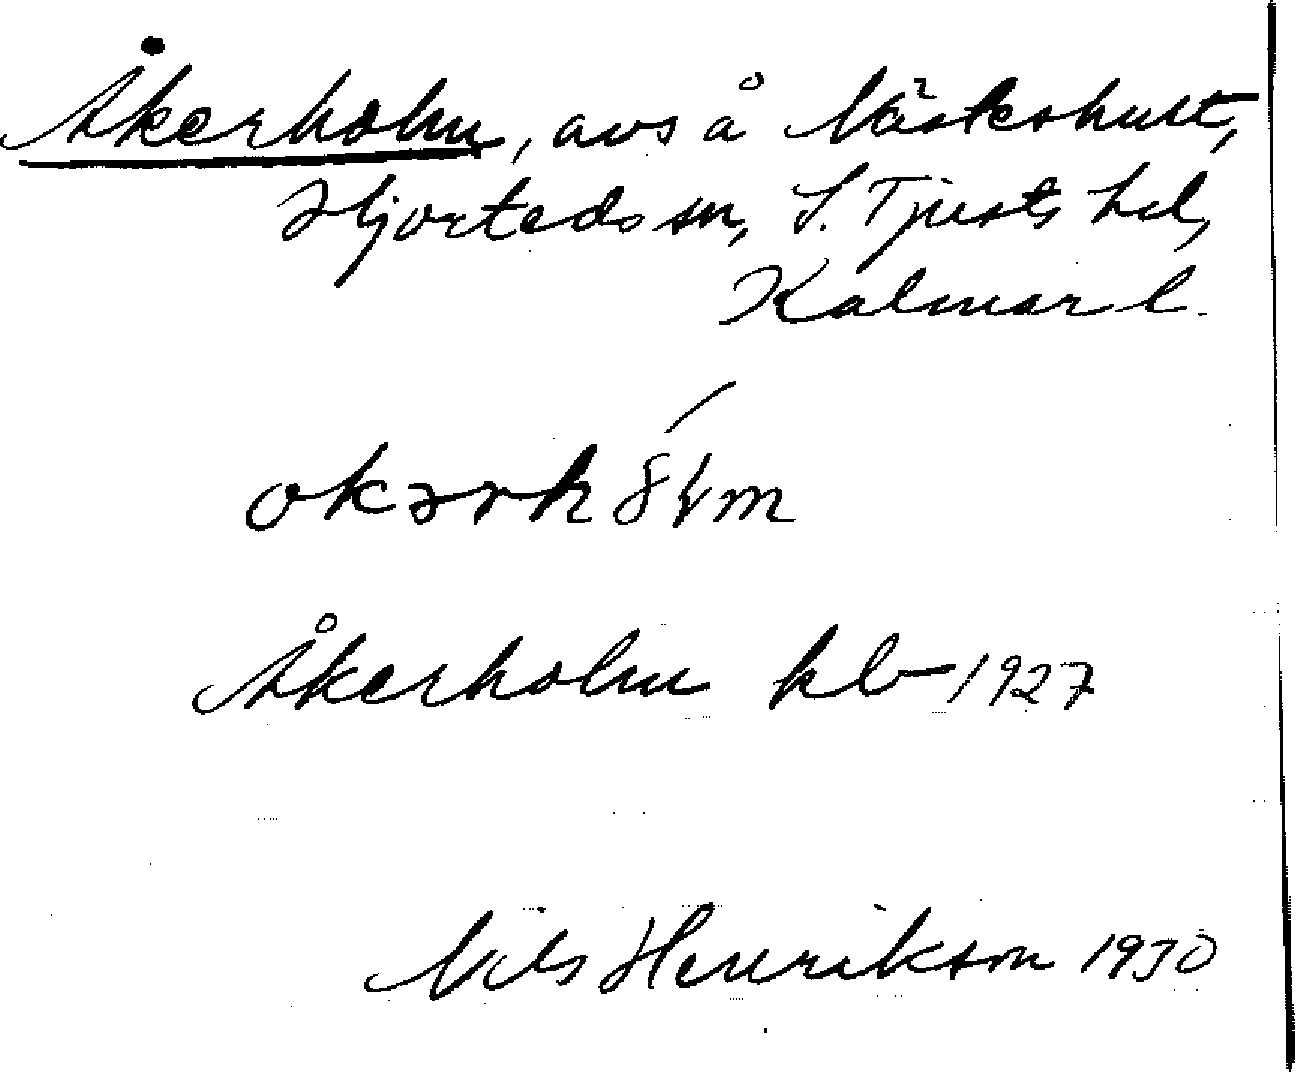 Åkerholm, avs å Mästeshult,
Hjorteds sn, S. Tjusts hd,
Kalmar l.
Åkerholm kb 1927
Nils Henrikson 1930